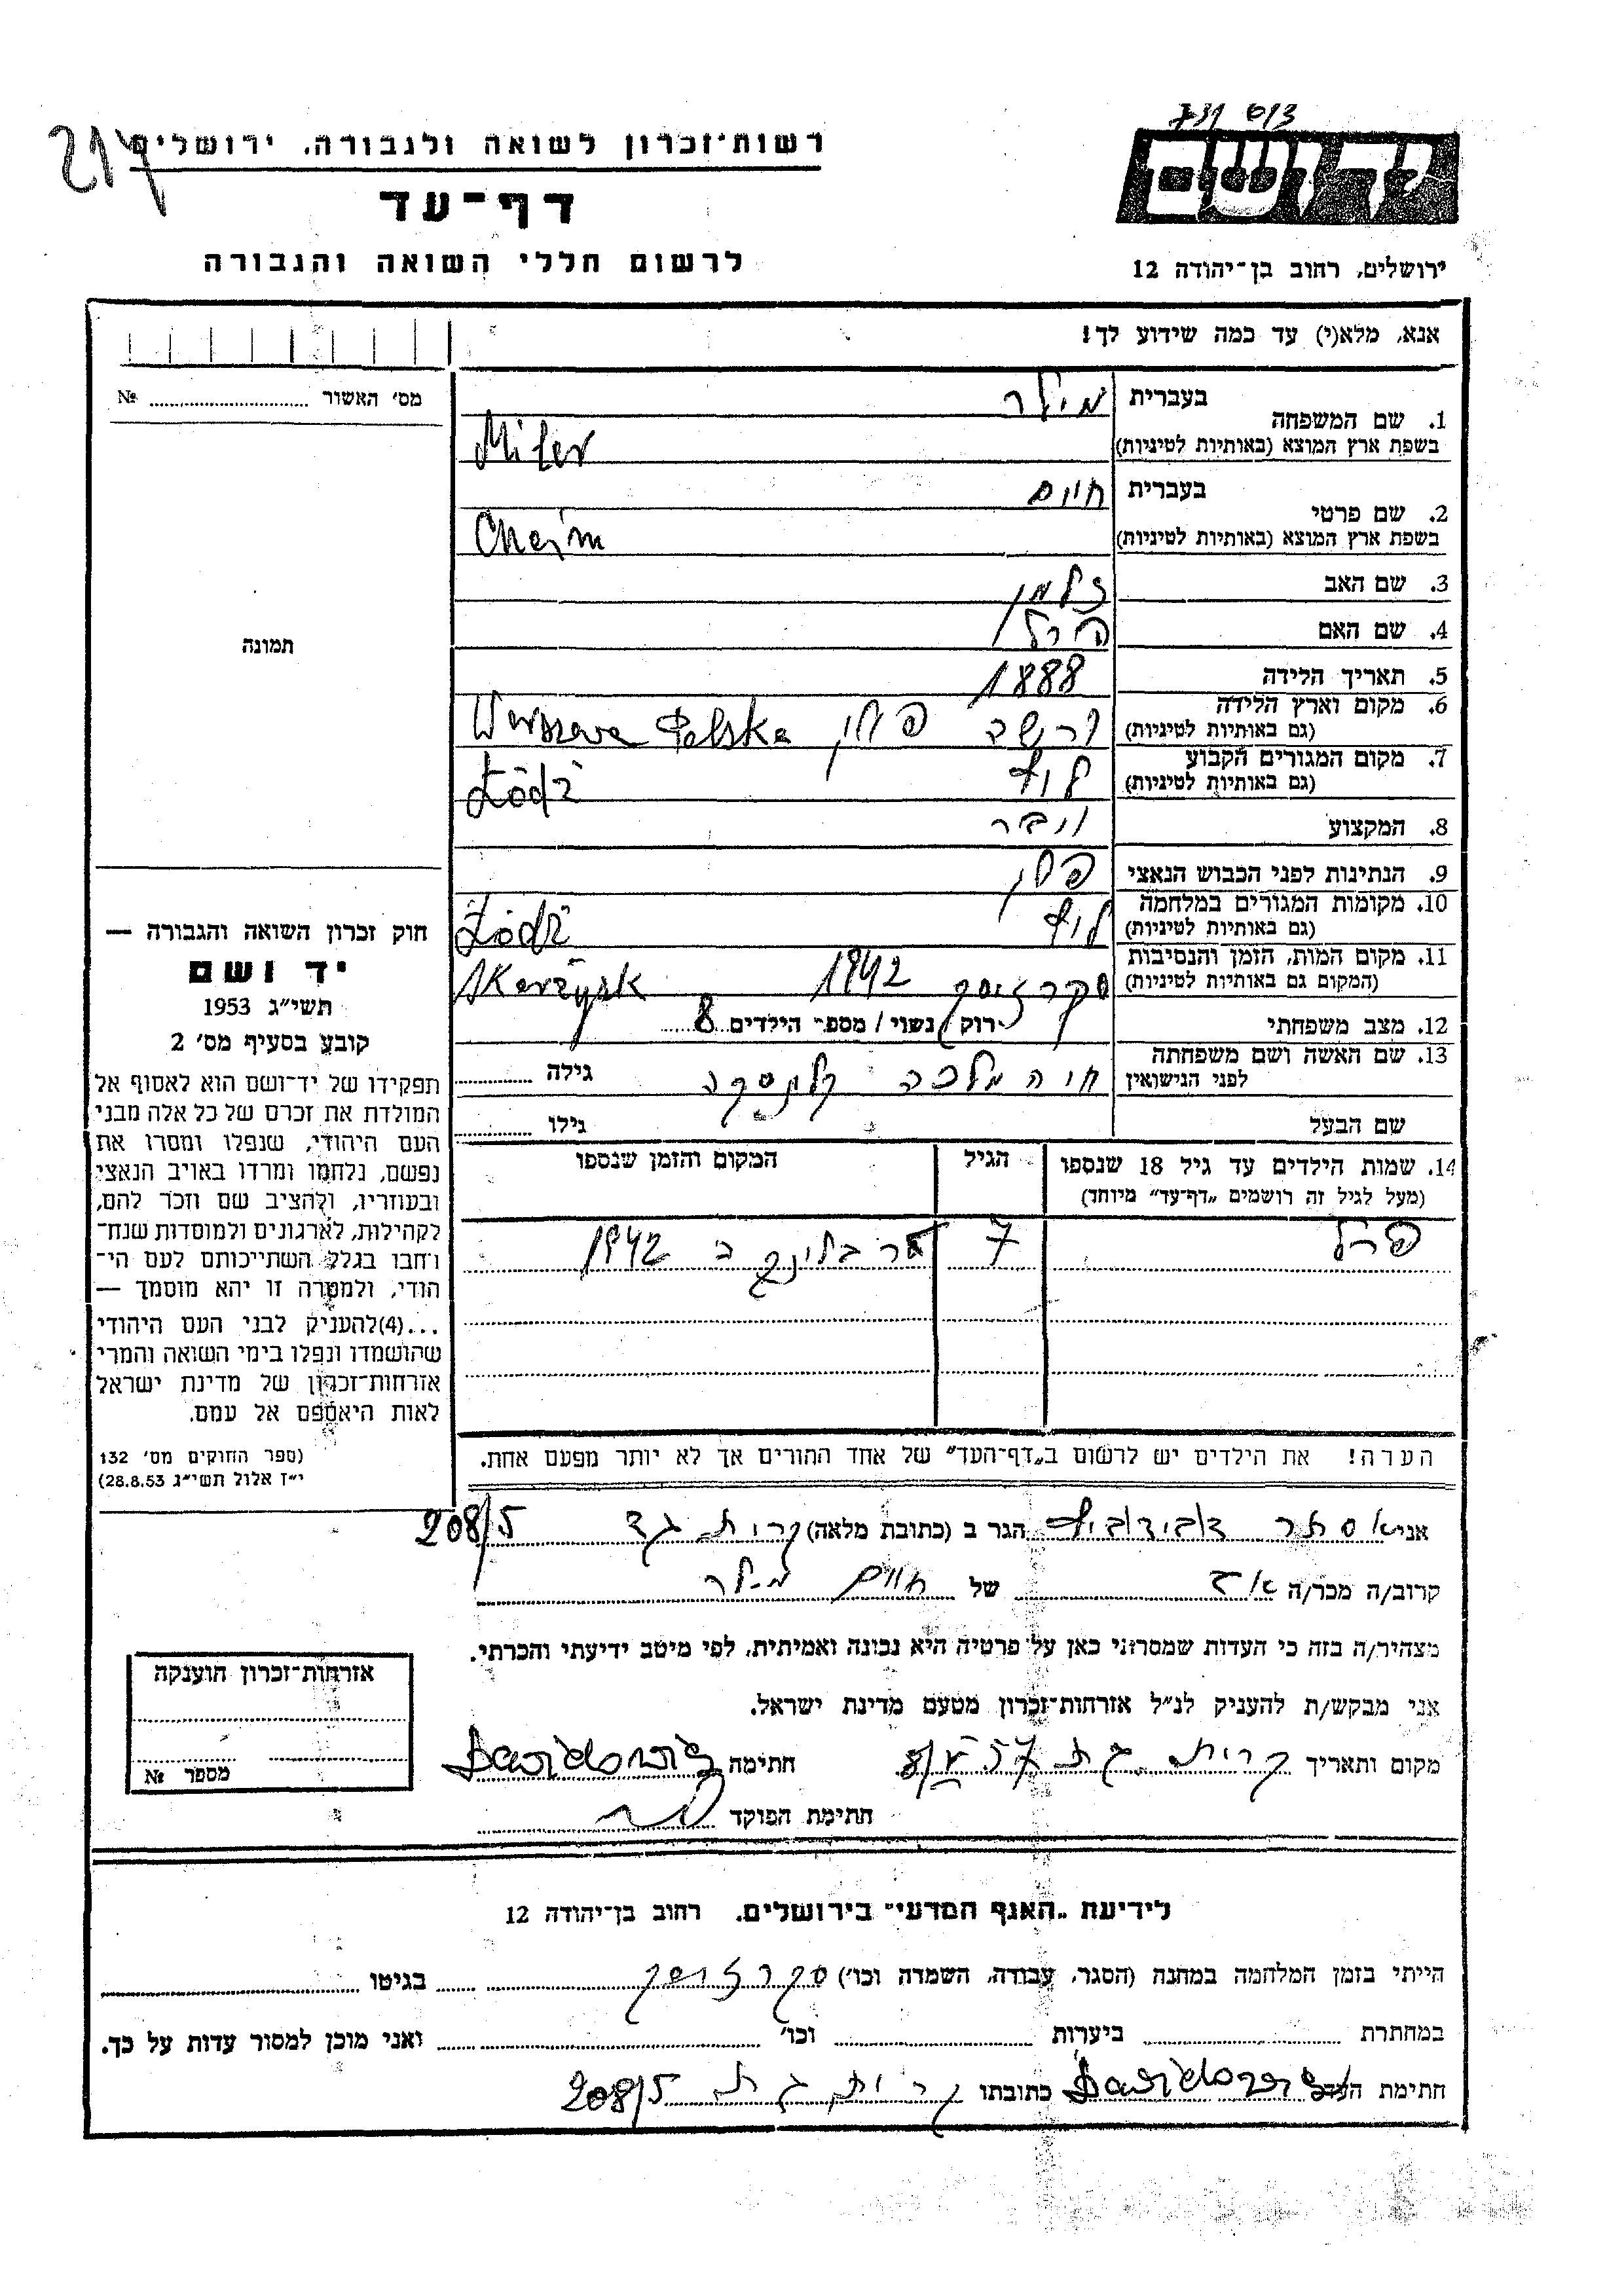 רשות־זכרון לשואה ולגבורה, ירושלים
דף־עד
לרשום חללי השואה והגבורה
יד ושם
ירושלים, רחוב בן־יהודה 12
אנא, מלא(י) עד כמה שידוע לך!
מס׳ האשור № ....................
1. שם המשפחה בעברית מילר
בשפת ארץ המוצא (באותיות לטיניות) Miler
2. שם פרטי בעברית חיים
בשפת ארץ המוצא (באותיות לטיניות) Chajm
3. שם האב זלמן
4. שם האם
5. תאריך הלידה 1888
6. מקום וארץ הלידה (גם באותיות לטיניות) ורשה פולין Warszawa Polska
7. מקום המגורים הקבוע (גם באותיות לטיניות) לודז Łódź
8. המקצוע
9. הנתינות לפני הכבוש הנאצי פולין
10. מקומות המגורים במלחמה (גם באותיות לטיניות) לודז Łódź
11. מקום המות, הזמן והנסיבות (המקום גם באותיות לטיניות) 1942 Skarżysk
12. מצב משפחתי רוק / נשוי / מספר הילדים 8
13. שם האשה ושם משפחתה לפני הנישואין חיה מלכה גילה
שם הבעל גילו
14. שמות הילדים עד גיל 18 שנספו (מעל לגיל זה רושמים „דף־עד” מיוחד) הגיל המקום והזמן שנספו
פרל 7 טרבלינקה ב 1942
הערה! את הילדים יש לרשום ב„דף־העד” של אחד ההורים אך לא יותר מפעם אחת.
תמונה
חוק זכרון השואה והגבורה —
יד ושם
תשי״ג 1953
קובע בסעיף מס׳ 2
תפקידו של יד־ושם הוא לאסוף אל
המולדת את זכרם של כל אלה מבני
העם היהודי, שנפלו ומסרו את
נפשם, נלחמו ומרדו באויב הנאצי
ובעוזריו, ולהציב שם וזכר להם,
לקהילות, לארגונים ולמוסדות שנח־
רחבו בגלל השתייכותם לעם הי־
הודי, ולמטרה זו יהא מוסמך —
...(4)להעניק לבני העם היהודי
שהושמדו ונפלו בימי השואה והמרי
אזרחות־זכרון של מדינת ישראל
לאות היאספם אל עמם.
(ספר החוקים מס׳ 132
י״ז אלול תשי״ג 28.8.53)
אני אסתר דבידוביץ הגר ב (כתובת מלאה) קרית גת 208/5
קרוב/ה מכר/ה של חיים מילר
מצהיר/ה בזה כי העדות שמסרתי כאן על פרטיה היא נכונה ואמיתית, לפי מיטב ידיעתי והכרתי.
אני מבקש/ת להעניק לנ״ל אזרחות־זכרון מטעם מדינת ישראל.
מקום ותאריך קרית גת 8/V 57 חתימה Dawidowicz
חתימת הפוקד
אזרחות־זכרון הוענקה
מספר №
לידיעת „האגף המדעי” בירושלים, רחוב בן־יהודה 12
הייתי בזמן המלחמה במחנה (הסגר, עבודה, השמדה וכו׳) בגיטו
במחתרת ביערות וכו׳ ואני מוכן למסור עדות על כך.
חתימת העד Dawidowicz כתובתו קרית גת 208/5